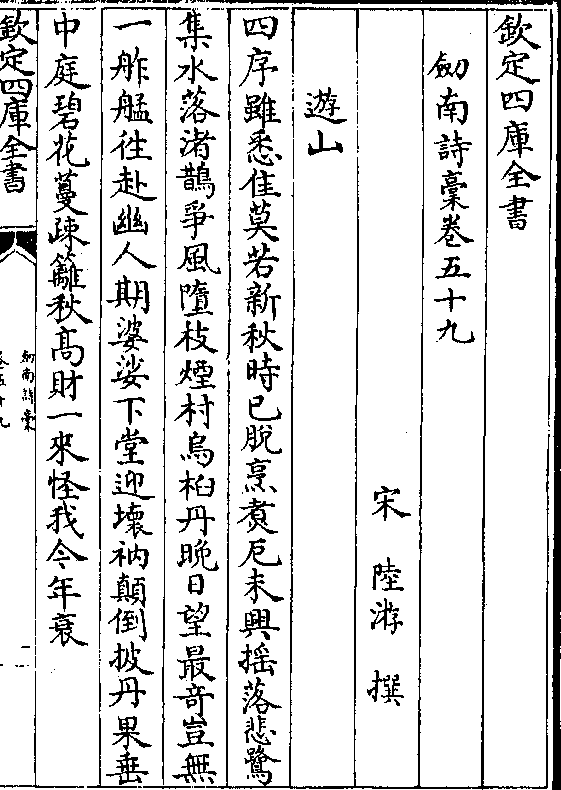 欽定四庫全書
劒南詩稾卷五十九
宋 陸游 撰
遊山
四序雖悉佳莫若新秋時已脫烹煑厄未興揺落悲鷺
集水落渚鵲爭風墮枝煙村烏桕丹晚日望最竒豈無
一舴艋徃赴幽人期婆娑下堂迎壊衲顛倒披丹果垂
中庭碧花蔓疎籬秋髙財一來怪我今年衰
欽定四庫全書
劒南詩稾
卷五十九
一